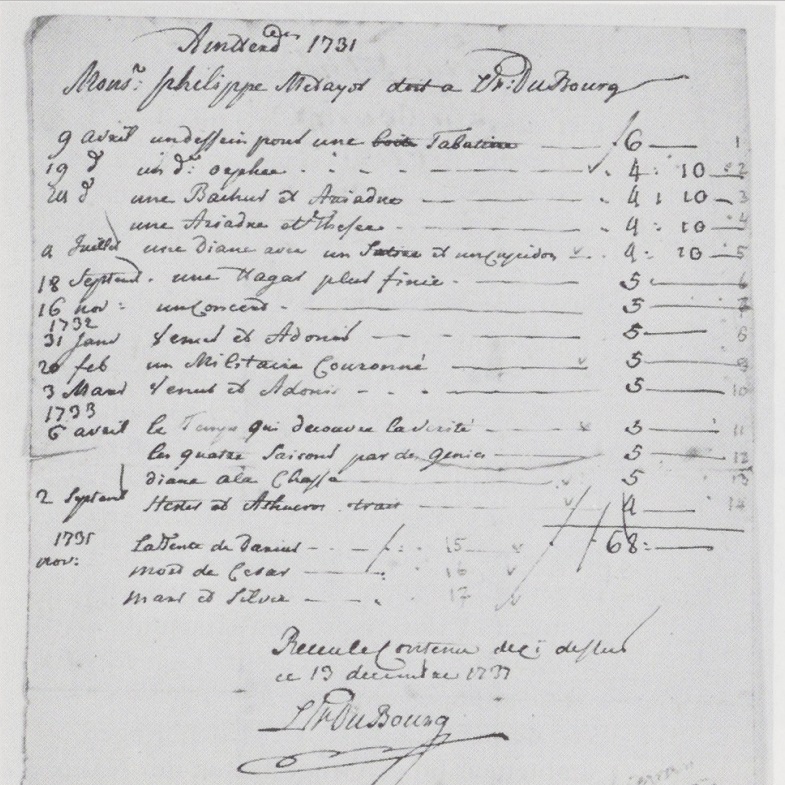 Amsterd. 1731
Monsr: philippe Metayer doit a L Fr: DuBourg
9 avril un dessein pour une boite Tabatiere — 6 — 1
19 d un d: orphee - - - 4 : 10 — 2
d une Bachus et Ariadne - 4 : 10 — 3
une Ariadne et Thesee - 4 : 10 — 4
a Juillet une Diane avec un Satire et un Cupidon - 4 : 10 — 5
18 Septemb. une Hagar plus finie - 5 — 6
16 nov: un Concert - 5 — 7
1732
31 Janv Venus et Adonis - - 5 — 8
20 feb un Militaire Couronné — 5 — 9
3 Mars Venus et Adonis - - 5 — 10
1733
6 avril le Temps qui decouvre la verité - 5 — 11
les quatre Saisons par des Genies - 5 — 12
diane a la Chasse - 5 — 13
2 Septemb Hester et Ashueros - 4 — 14
68:—
1735
nov: La Tente de Darius - - - 15
mort de Cesar — 16
mars et Silvie - - 17
Receu le Contenu de Ci dessus
ce 13 decembre 1737
L Fr DuBourg